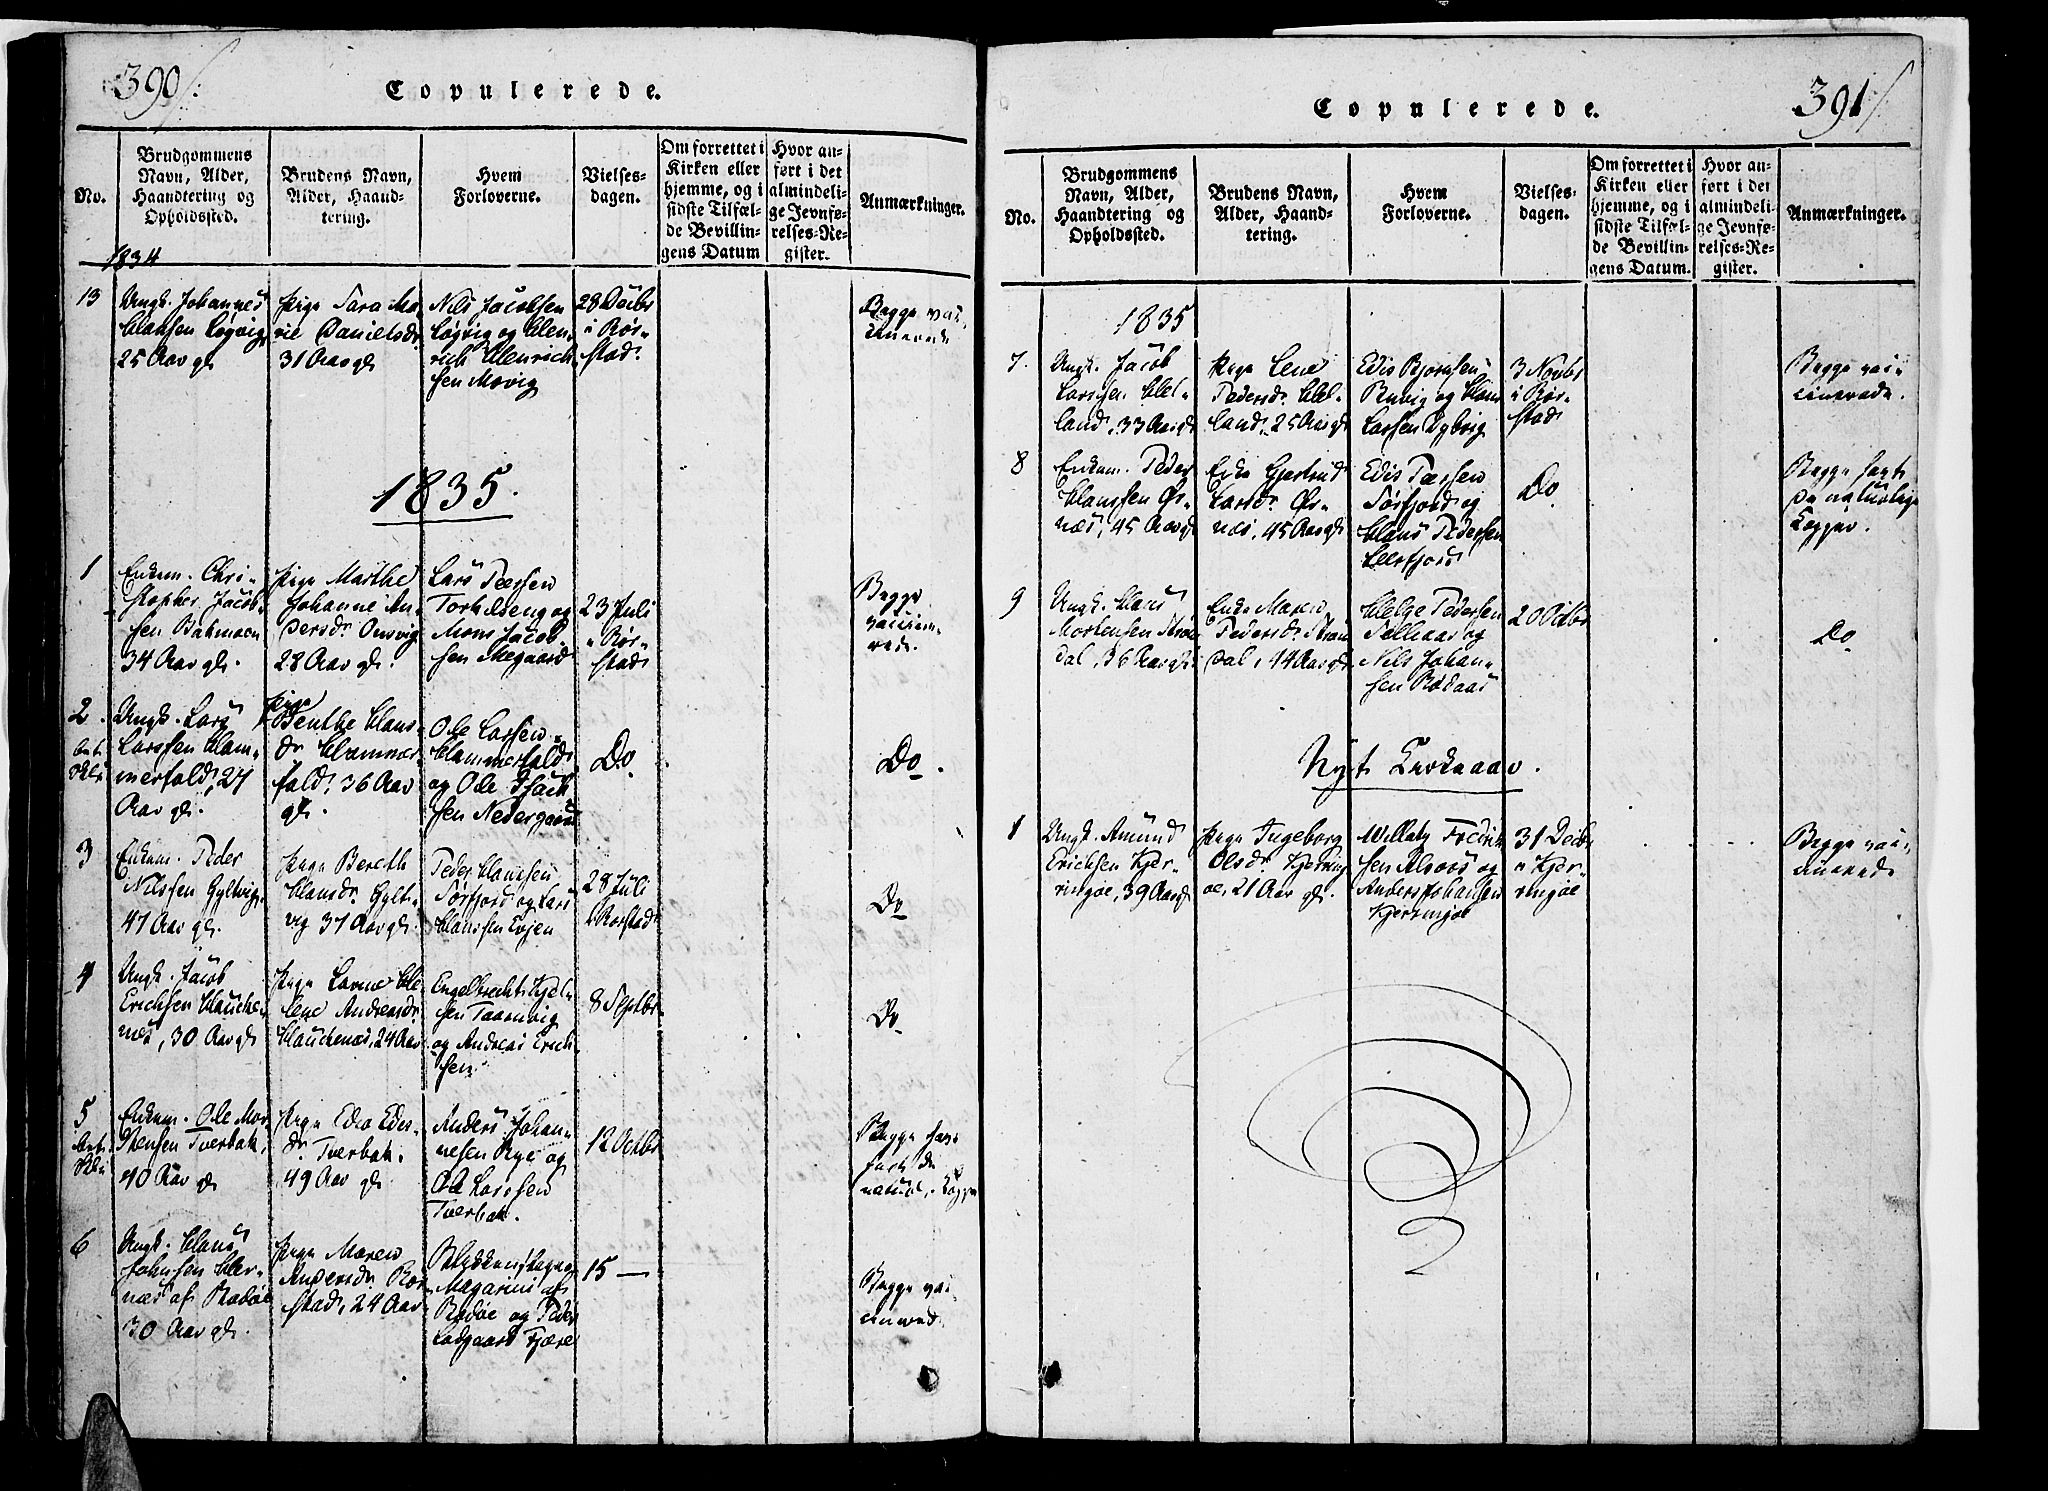 390/.
Copulerede.
No.
Brudgommens
Navn, Alder,
Haandtering og
Opholdssted.
Brudens Navn,
Alder, Haand-
tering.
Hvem
Forloverne.
Vielses-
dagen.
Om forrettet i
Kirken eller
hjemme, og i
sidste Tilfæl-
de Bevillin-
gens Datum
Hvor an-
ført i det
almindeli-
ge Jevnfø-
relses-Re-
gister.
Anmærkninger.
1834
13
Ungk. Johannes
Hansen Løgvig
25 Aar gl.
Pige Sara Ma-
rie Danielsdr.
31 Aar gl.
Nils Jacobsen
Løgvig og Hen-
rich Henrich-
sen Movig
28 Decbr
i Rør-
stad.
Begge vac-
cinerede
1835.
1
Enkem. Chri-
stopher Jacob-
sen Bakmoen
34 Aar gl.
Pige Marthe
Johanne An-
dersdr. Onsvig
28 Aar gl.
Lars Peersen
Torkilseng og
Mons Jacob-
sen Megaard
23 Juli
i Rør-
stad
Begge
vaccine-
rede.
2.
Ungk. Lars
Larssen Ham-
merfald, 27
Aar gl.
Pige
Benthe Hans-
dr. Hammer-
fald. 36 Aar
gl.
Ole Larsen
Hammerfald
og Ole Isach-
sen Nedergaard
Do
Do.
3
Enkem. Peder
Nilssen Gyltvig,
47 Aar gl.
Pige Bereth
Hansdr. Gylt-
vig 37 Aar gl.
Peder Hanssen
Sørfjord og Lars
Hanssen Evjen
28 Juli
i Rørstad
Do
4
Ungk. Jacob
Erichsen Hauke-
næs, 30 Aar gl.
Pige Lorine He-
lene Andreasdr.
Haukenæs, 24 Aar
Engelbrecht Kjel-
sen Taarnvig
og Andreas Erich-
sen
8 Septbr.
Do
5
Enkem. Ole Mor-
tensen Tverbak,
40 Aar gl.
Pige Edis Edis-
dr. Tverbak.
49 Aar gl.
Anders Johan-
nesen Rye og
Ole Larssen
Tverbak.
12 Octbr
Begge hav-
naturl. Kopper
6
Ungk. Hans
Johnsen Her-
næs af Rødøe
30 Aar gl.
Pige Maren
Andersdr. Rør-
stad, 24 Aar
Magarius af
Rødøe og Peder
Ladgaard Fjære
15 —
Begge vac-
cinered
391/.
Copulerede.
No.
Brudgommens
Navn, Alder,
Haandtering og
Opholdssted.
Brudens Navn,
Alder, Haand-
tering.
Hvem
Forloverne.
Vielses-
dagen.
Om forrettet i
Kirken eller
hjemme, og i
sidste Tilfæl-
de Bevillin-
gens Datum.
Hvor an-
ført i det
almindeli-
ge Jevnfø-
relses-Re-
gister.
Anmærkninger.
1835
7.
Ungk. Jacob
Larssen Hel-
land, 33 Aar gl
Pige Lene
Pedersdr. Hel-
land, 25 Aar gl
Edis Bjørnsen
Buvig og Hans
Larssen Dybvig
3 Novbr
i Rør-
stad
Begge vac-
cinerede.
8
Enkem. Peder
Hanssen Ør-
næs, 45 Aar gl
Enke Gjertrud
Larsdr. Ør-
næs, 45 Aar gl
Edis Peersen
Sørfjord og
Hans Pedersen
Leerfjord
Do
Begge havt
de naturlige
Kopper.
9
Ungk. Hans
Mortensen Strøm-
dal, 36 Aar gl.
Enke Maren
Pedersdr. Strøm-
dal, 44 Aar gl
Helge Pedersen
Selleaas og
Nils Johan-
sen Rødaas
20 Octbr
Do
Nyt Kirkeaar.
1
Ungk. Amund
Erichsen Kjer-
ringøe, 39 Aar gl
Pige Ingeborg
Olsdr. Kjerring-
øe, 21 Aar gl.
Willatz Fredrik-
sen Alvors og
Anders Johansen
Kjerringøe
31 Decbr
i Kjer-
ringøe
Begge vac-
cinerede